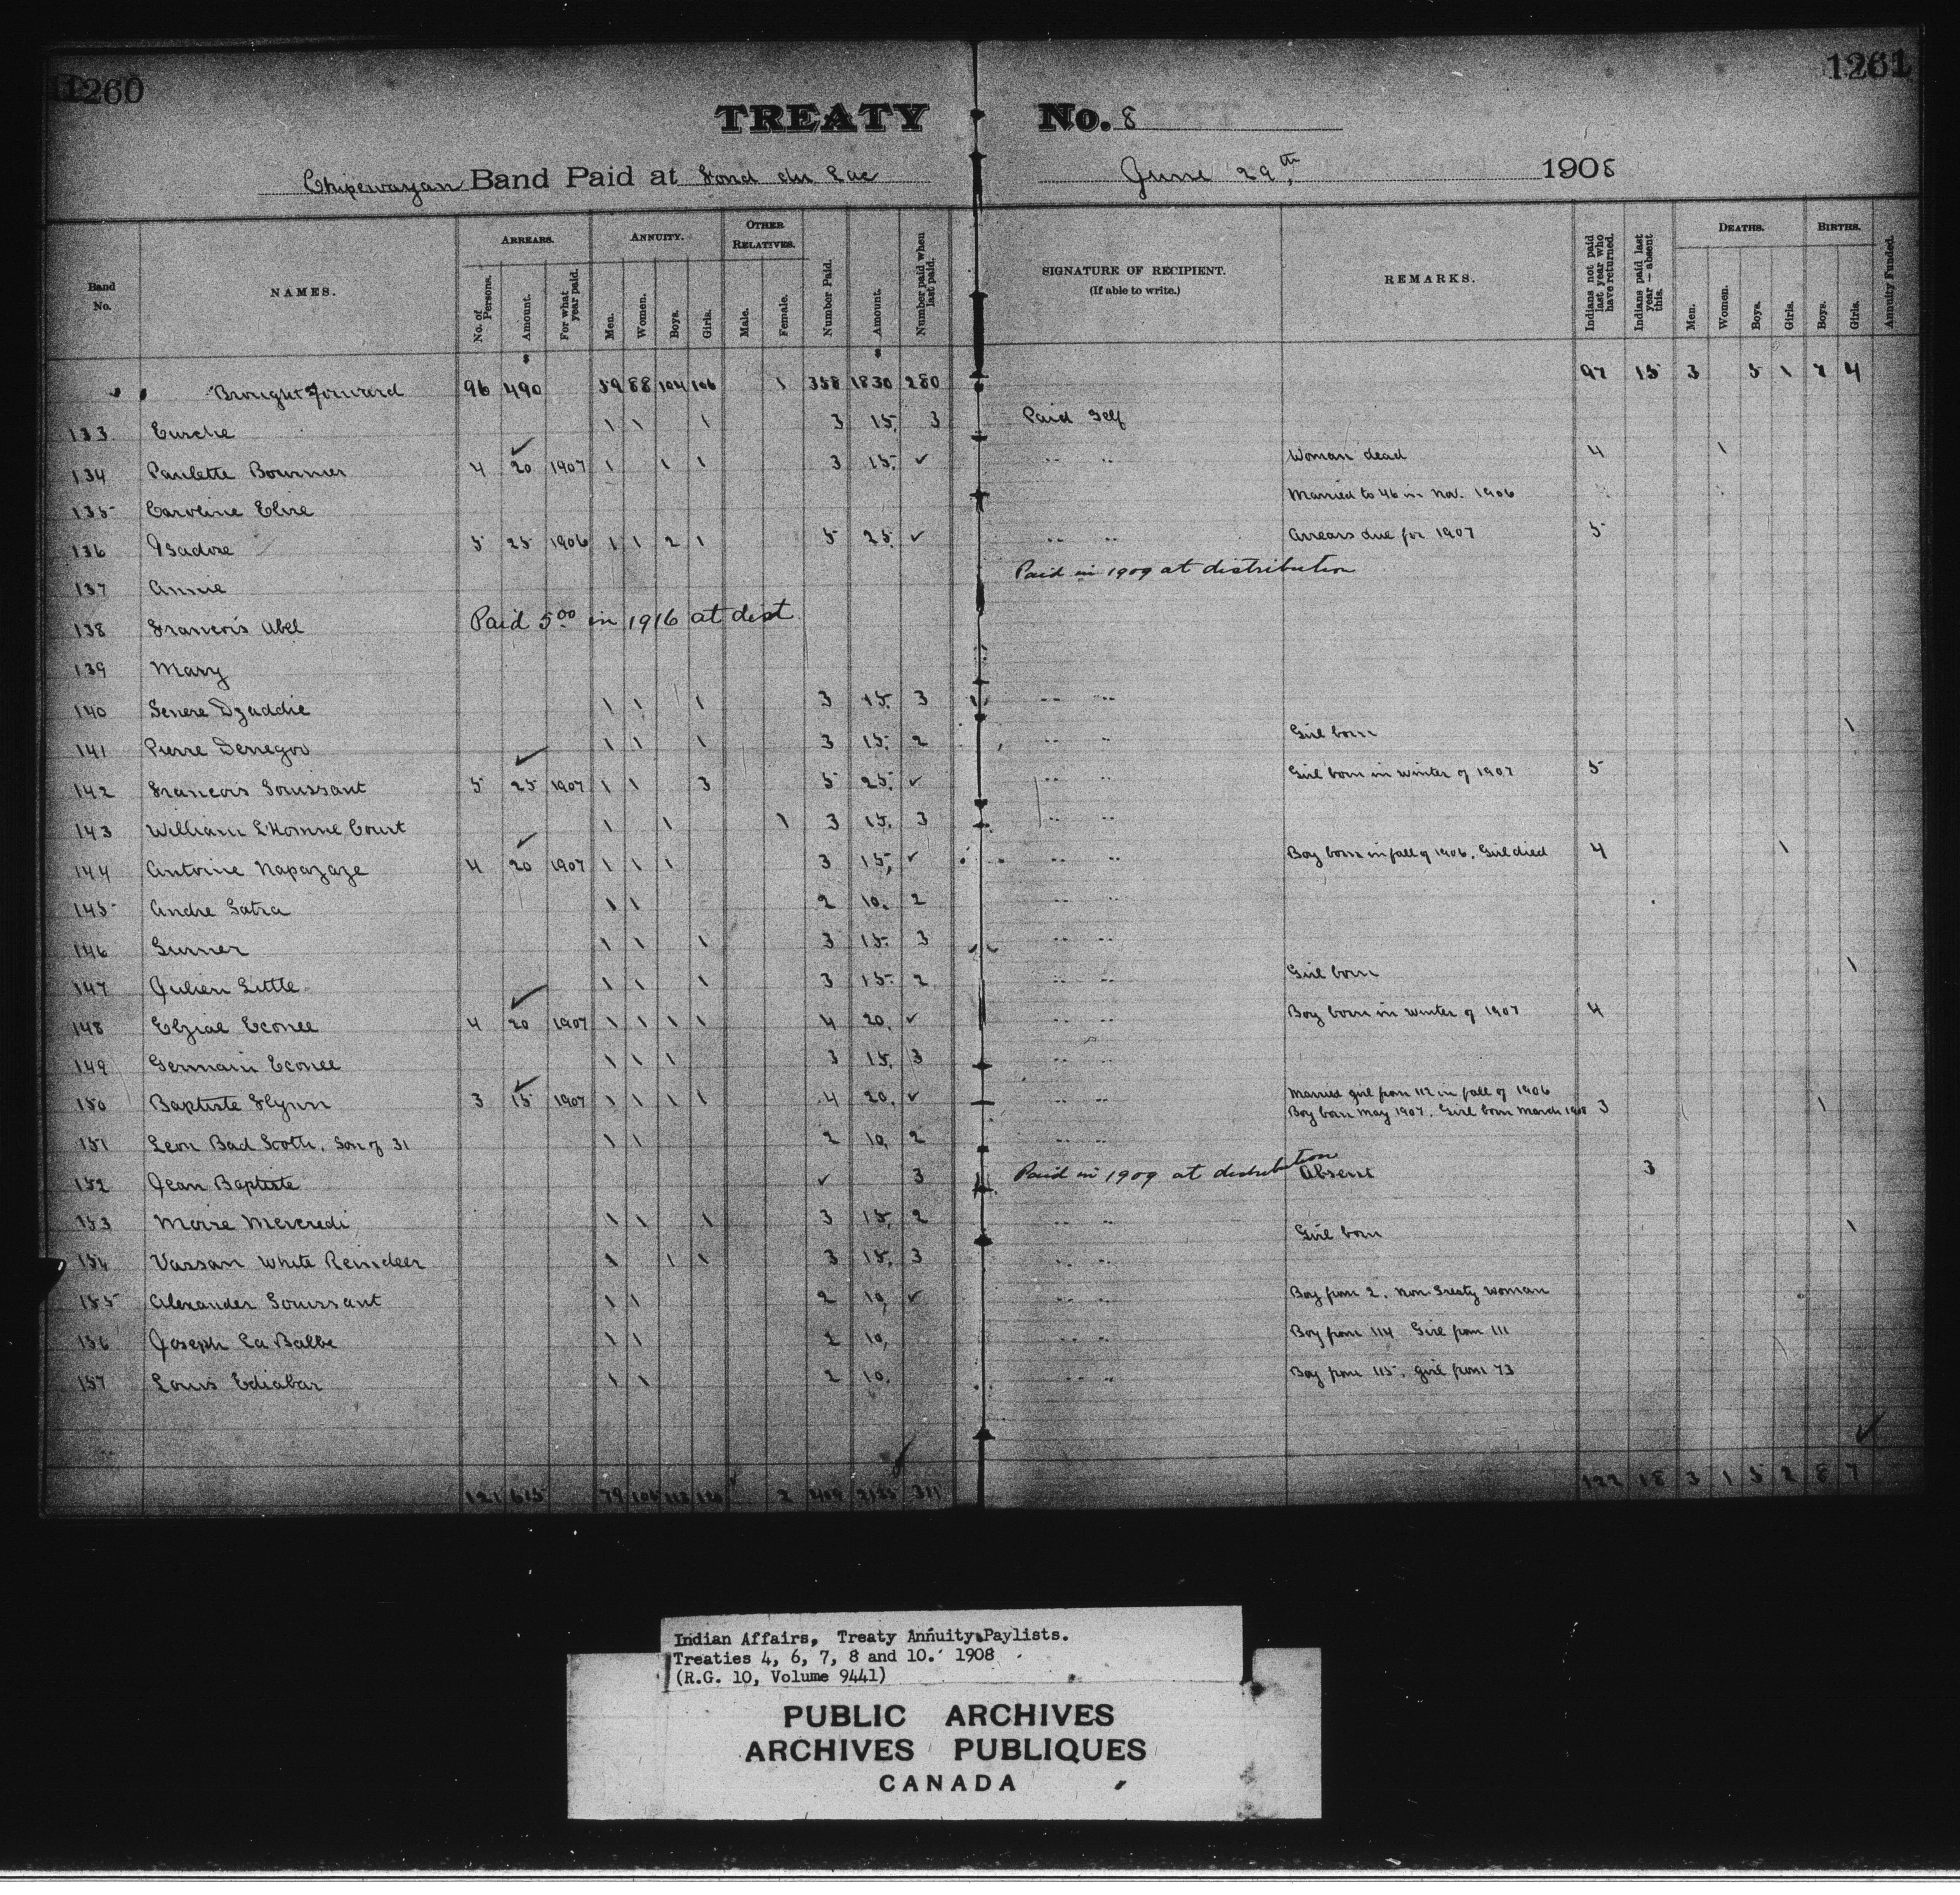 1260
1261
TREATY No. 8
Chipewayan Band Paid at Fond du Lac June 29th, 1908
Band No. NAMES. ARREARS. ANNUITY. OTHER RELATIVES. Number Paid. Amount. Number paid when last paid. SIGNATURE OF RECIPIENT. (If able to write.) REMARKS. Indians not paid last year who have returned. Indians paid last year—absent this. DEATHS. BIRTHS. Annuity Funded.
No. of Persons. Amount. For what year paid. Men. Women. Boys. Girls. Male. Female. Men. Women. Boys. Girls. Boys. Girls.
$ $
Brought Forward 96 490 59 88 104 106 1 358 1830 280 97 15 3 5 1 7 4
133 Eurche 1 1 1 3 15. 3 Paid Self
134 Paulette Bournier 4 20 1907 1 1 1 3 15. ✓ " " Woman dead 4 1
135 Caroline Elise Married to 46 in Nov. 1906
136 Isadore 5 25 1906 1 1 2 1 5 25. ✓ " " Arrears due for 1907 5
137 Annie Paid in 1909 at distribution
138 Francois Abel Paid 5.00 in 1916 at dist
139 Mary
140 Senere Dzaddie 1 1 1 3 15. 3 " "
141 Pierre Denegou 1 1 1 3 15. 2 " " Girl born 1
142 Francois Toussant 5 25 1907 1 1 3 5 25. ✓ " " Girl born in winter of 1907 5
143 William L'Homme Court 1 1 1 3 15. 3 " "
144 Antoine Napazaze 4 20 1907 1 1 1 3 15, ✓ " " Boy born in fall of 1906. Girl died 4 1
145 Andre Satra 1 1 2 10. 2 " "
146 Surner 1 1 1 3 15. 3 " "
147 Julien Little 1 1 1 3 15. 2 " " Girl born 1
148 Elzial Econee 4 20 1907 1 1 1 1 4 20. ✓ " " Boy born in winter of 1907 4
149 Germain Econee 1 1 1 3 15. 3 " "
150 Baptiste Flynn 3 15 1907 1 1 1 1 4 20. ✓ " " Married girl from 112 in fall of 1906
Boy born May 1907. Girl born March 1908 3 1
151 Leon Bad Scotti, Son of 31 1 1 2 10, 2 " "
152 Jean Baptiste ✓ 3 Paid in 1909 at distribution Absent 3
153 Moise Mercredi 1 1 1 3 15. 2 " " Girl born 1
154 Vassan White Reindeer 1 1 1 3 15. 3 " "
155 Alexander Toussant 1 1 2 10, ✓ " " Boy from 2. Non Treaty woman
156 Joseph La Balbe 1 1 2 10, " " Boy from 114 Girl from 111
157 Louis Ediabar 1 1 2 10. " " Boy from 115. girl from 73
121 615 79 106 113 120 2 409 2135 311 122 18 3 1 5 2 8 7
Indian Affairs, Treaty Annuity Paylists.
Treaties 4, 6, 7, 8 and 10. 1908
(R.G. 10, Volume 9441)
PUBLIC ARCHIVES
ARCHIVES PUBLIQUES
CANADA